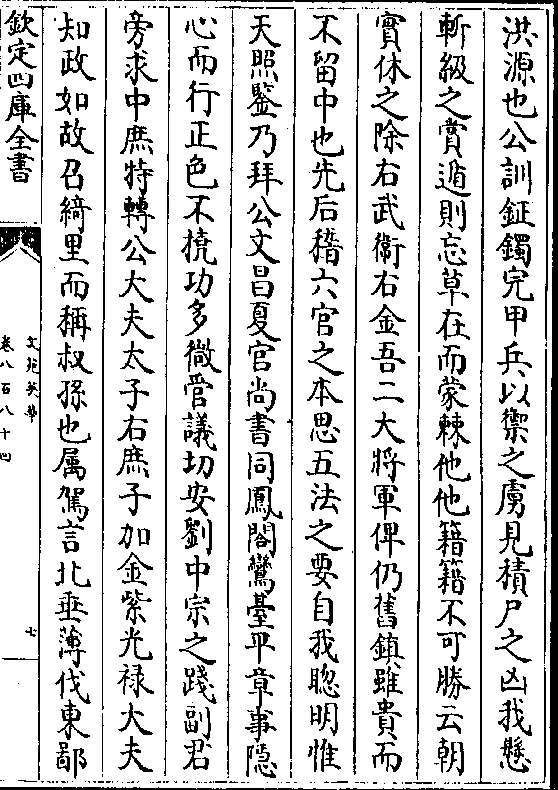 洪源也公訓鉦鐲完甲兵以禦之虜見積尸之凶我懸
斬級之賞遁則忘草在而蒙棘他他籍籍不可勝云朝
實休之除右武衛右金吾二大將軍俾仍舊鎮雖貴而
不留中也先后稽六官之本思五法之要自我聰明惟
天照鑒乃拜公文昌夏官尚書同鳳閣鸞臺平章事隱
心而行正色不撓功多微管議切安劉中宗之踐副君
旁求中庶特轉公大夫太子右庶子加金紫光祿大夫
知政如故召綺里而稱叔孫也属駕言北垂薄伐東鄙
欽定四庫全書
文苑英華
卷八百八十四
七